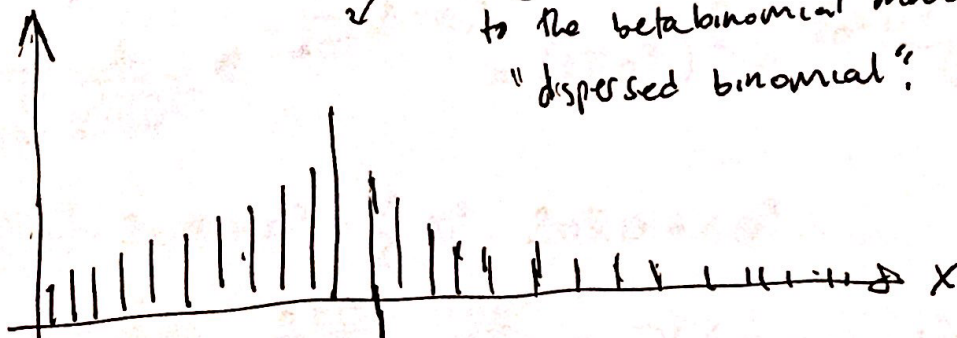 to the betabinomial
"dispersed binomial".
X